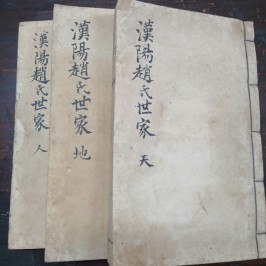 漢陽趙氏世家 天
漢陽趙氏世家 地
漢陽趙氏世家 人